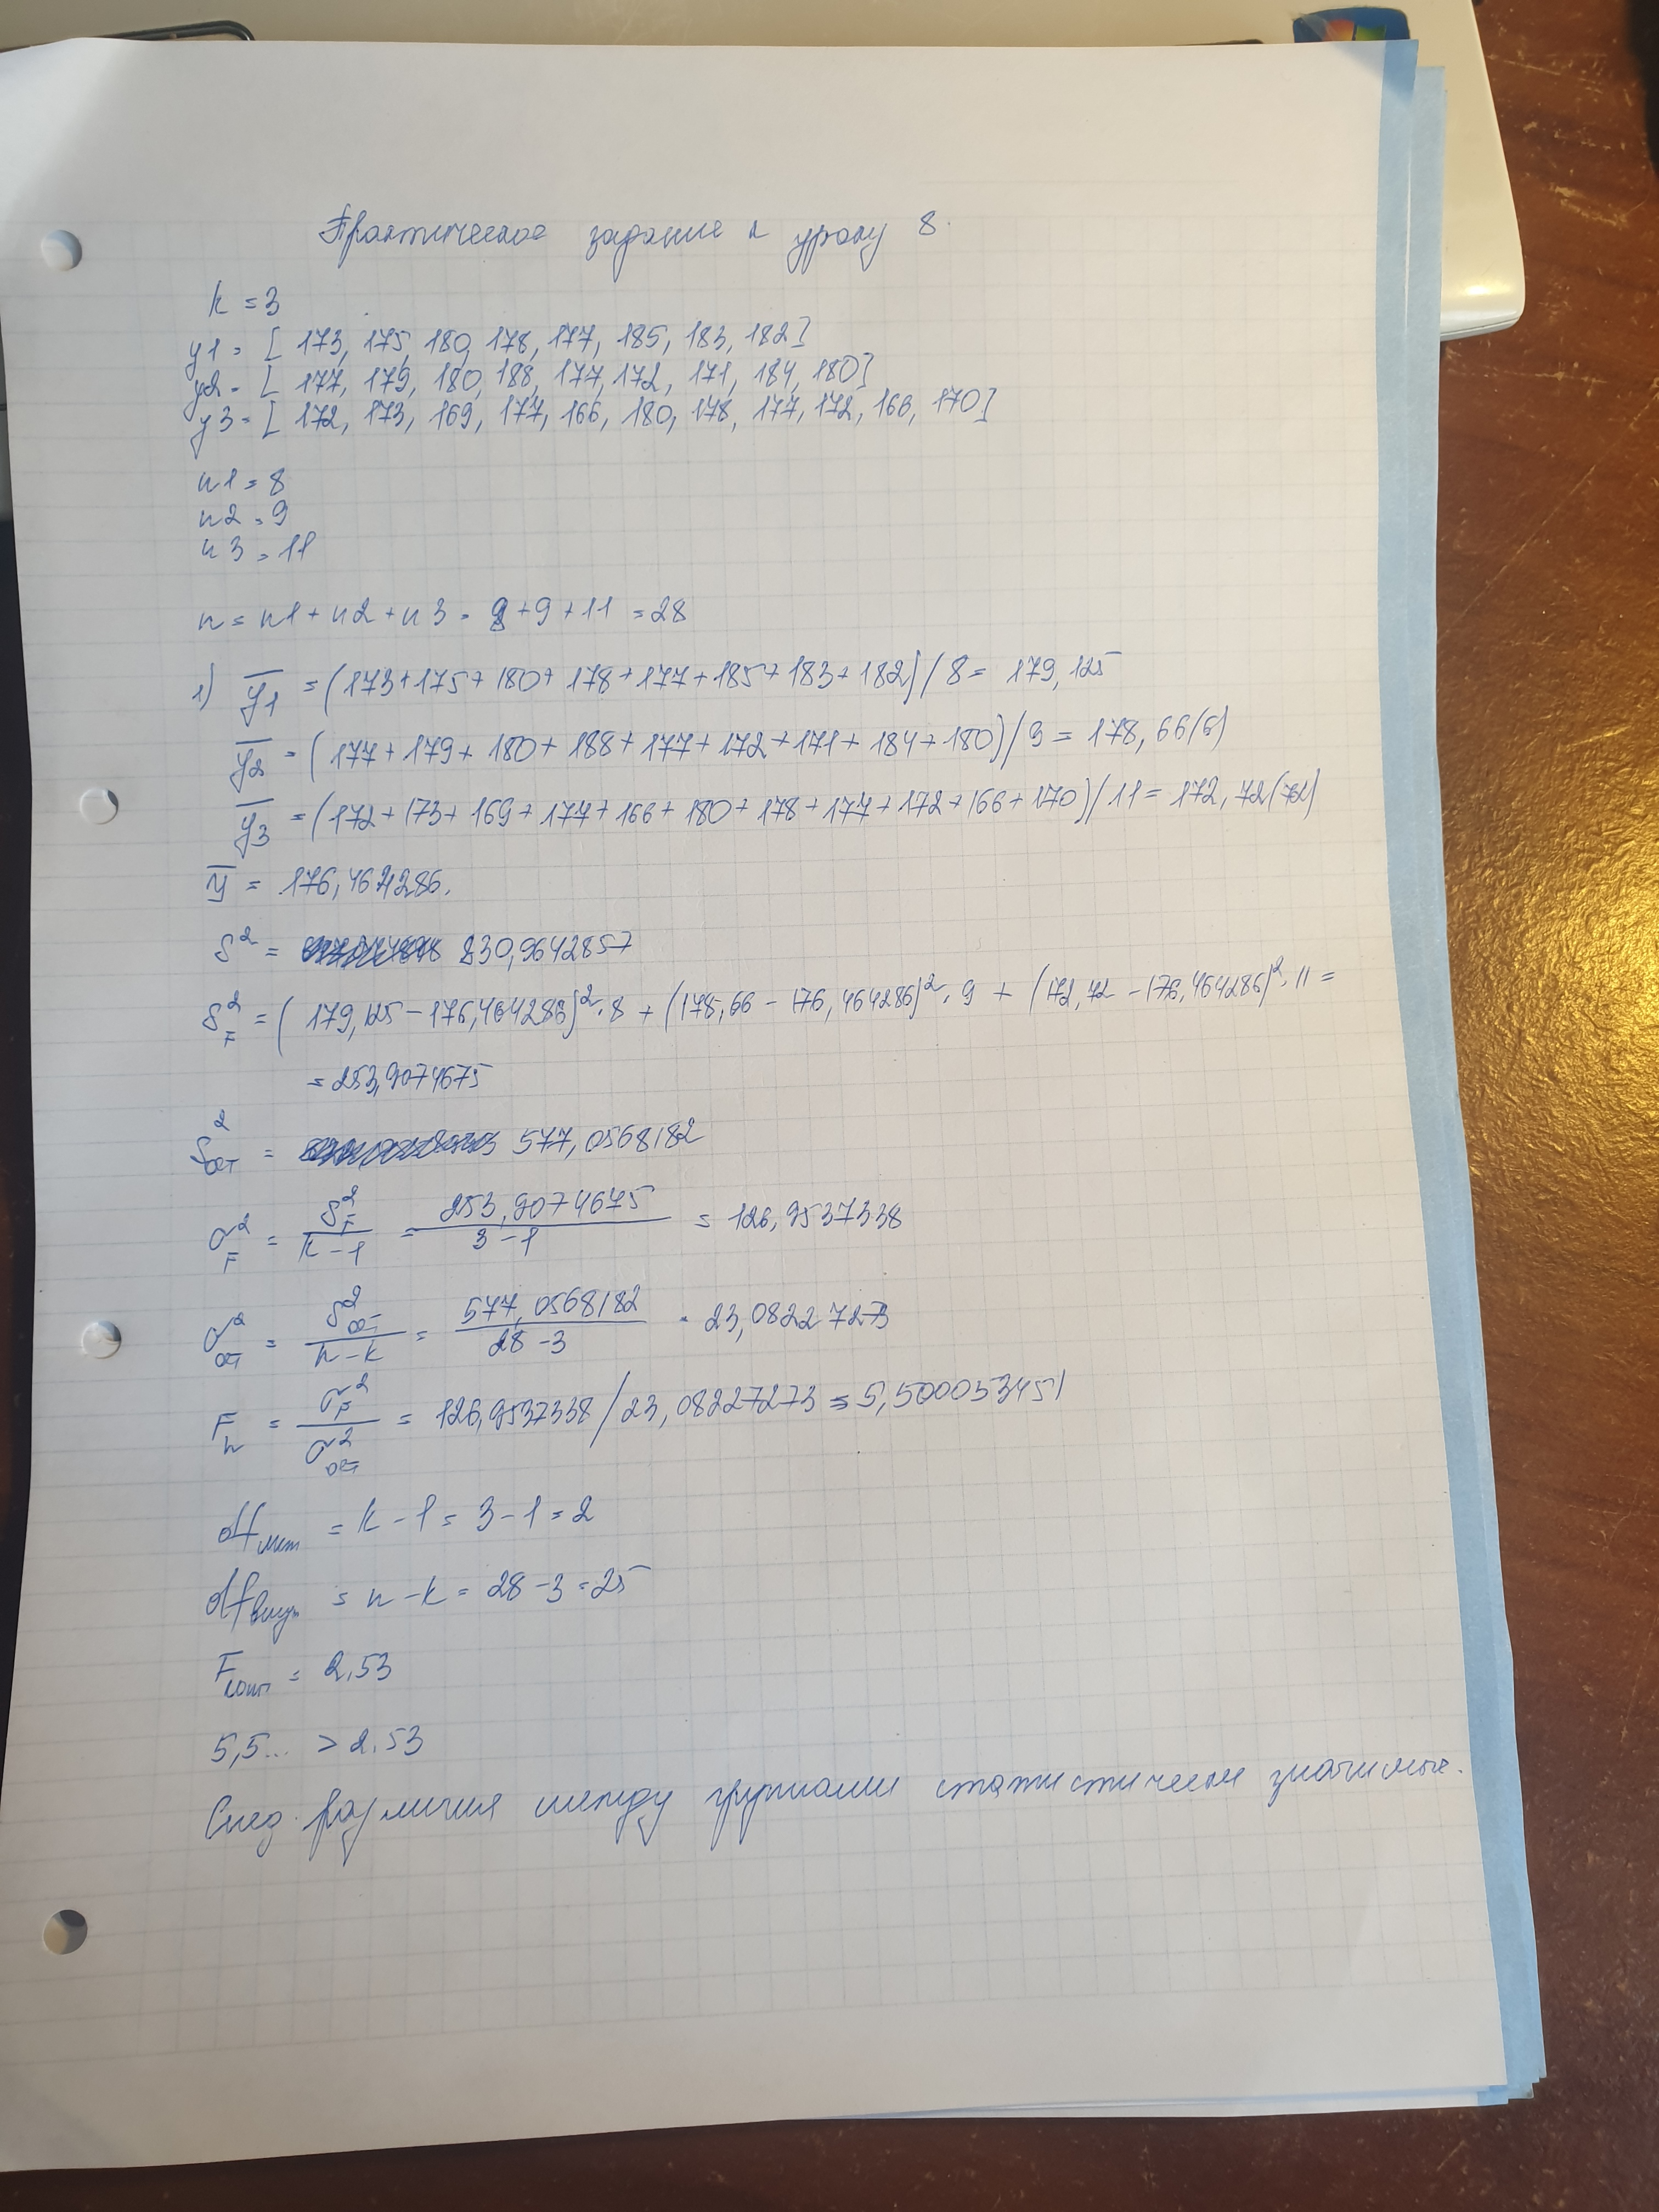 Практическое задание к уроку 8.
k = 3
y1 = [ 173, 175, 180, 178, 177, 185, 183, 182]
y2 = [ 177, 179, 180, 188, 177, 172, 171, 184, 180]
y3 = [ 172, 173, 169, 177, 166, 180, 178, 177, 172, 166, 170]
n1 = 8
n2 = 9
n3 = 11
n = n1 + n2 + n3 = 8 + 9 + 11 = 28
1) y̅1 = (173+175+180+178+177+185+183+182)/8 = 179,125
y̅2 = (177+179+180+188+177+172+171+184+180)/9 = 178,66(6)
y̅3 = (172+173+169+177+166+180+178+177+172+166+170)/11 = 172,72(72)
y̅ = 176,464286.
S² = 830,9642857
S²_F = (179,125 - 176,464286)²·8 + (178,66 - 176,464286)²·9 + (172,72 - 176,464286)²·11 =
= 253,9074675
S²_ост = 577,0568182
σ²_F = S²_F / (k-1) = 253,9074675 / (3-1) = 126,9537338
σ²_ост = S²_ост / (n-k) = 577,0568182 / (28-3) = 23,08227273
F_н = σ²_F / σ²_ост = 126,9537338/23,08227273 = 5,500053451
df_меж = k - 1 = 3 - 1 = 2
df_внутр = n - k = 28 - 3 = 25
F = 2.53
5,5... > 2.53
След. различия между группами статистически значимые.